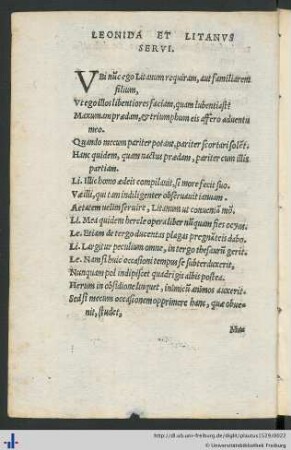 LEONIDA ET LITANVS
SERVI.
VBi nũc ego Litanum requiram, aut familiarem
filium,
Vt ego illos libentiores faciam, quam lubentia ſit?
Maxumam prædam, & triumphum eis affero aduentu
meo.
Quando mecum pariter potant, pariter ſcortari ſolẽt.
Hanc quidem, quam nactus prædam, pariter cum illis
partiam.
Li. Illic homo ædeis compilauit, ſi more fecit ſuo.
Væ illi, qui tam indiligenter obſeruauit ianuam.
Aetatem uelim ſeruire, Litanum ut conueniã mõ.
Li. Mea quidem hercle opera liber nunquam fies ocyus.
Le. Etiam de tergo ducentas plagas pregnateis dabo.
Li. Largitur peculium omne, in tergo theſaurũ gerit.
Le. Nam ſi huic occaſioni tempus ſe ſubterduxerit,
Nunquam pol indipiſcet quadrigis albis poſtea.
Herum in obſidione linquet, inimicũ animos auxerit.
Sed ſi mecum occaſionem opprimere hanc, quæ obue-
nit, ſtudet,
http://dl.ub.uni-freiburg.de/diglit/plautus1529/0022
© Universitätsbibliothek Freiburg